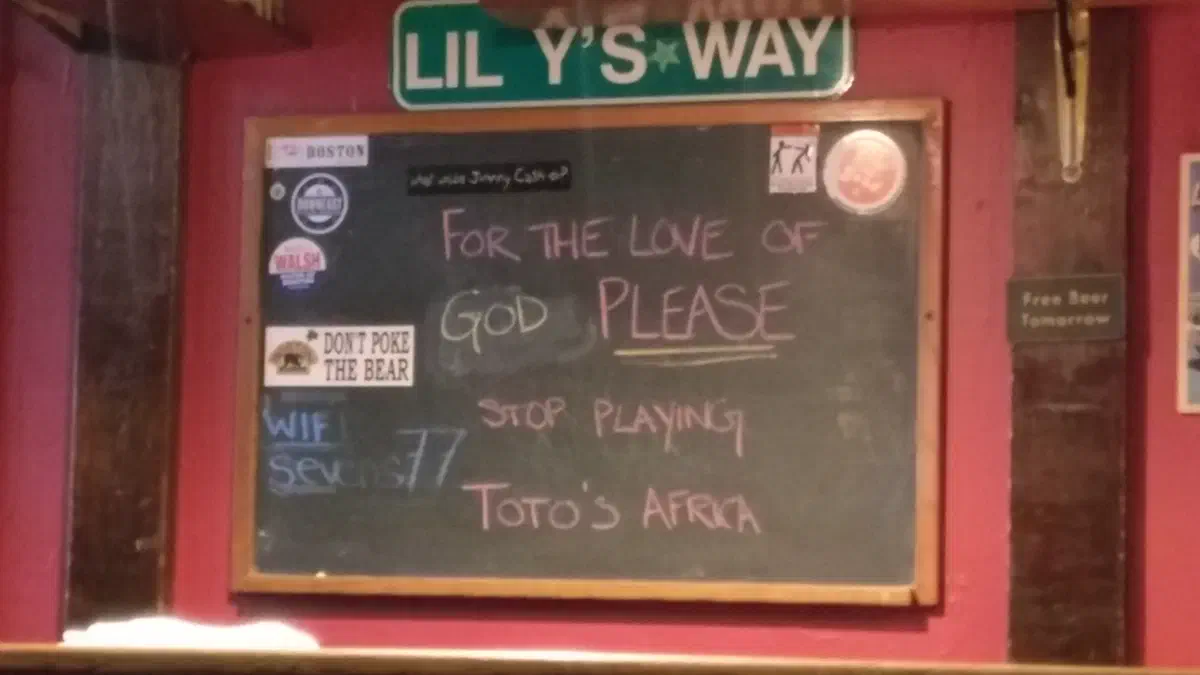 LIL Y'S WAY
BOSTON
Johnny Cash
FOR THE LOVE OF
GOD PLEASE
WALSH
DON'T POKE
THE BEAR
STOP PLAYING
WIFI
Sevens77
TOTO'S AFRICA
Free Beer
Tomorrow